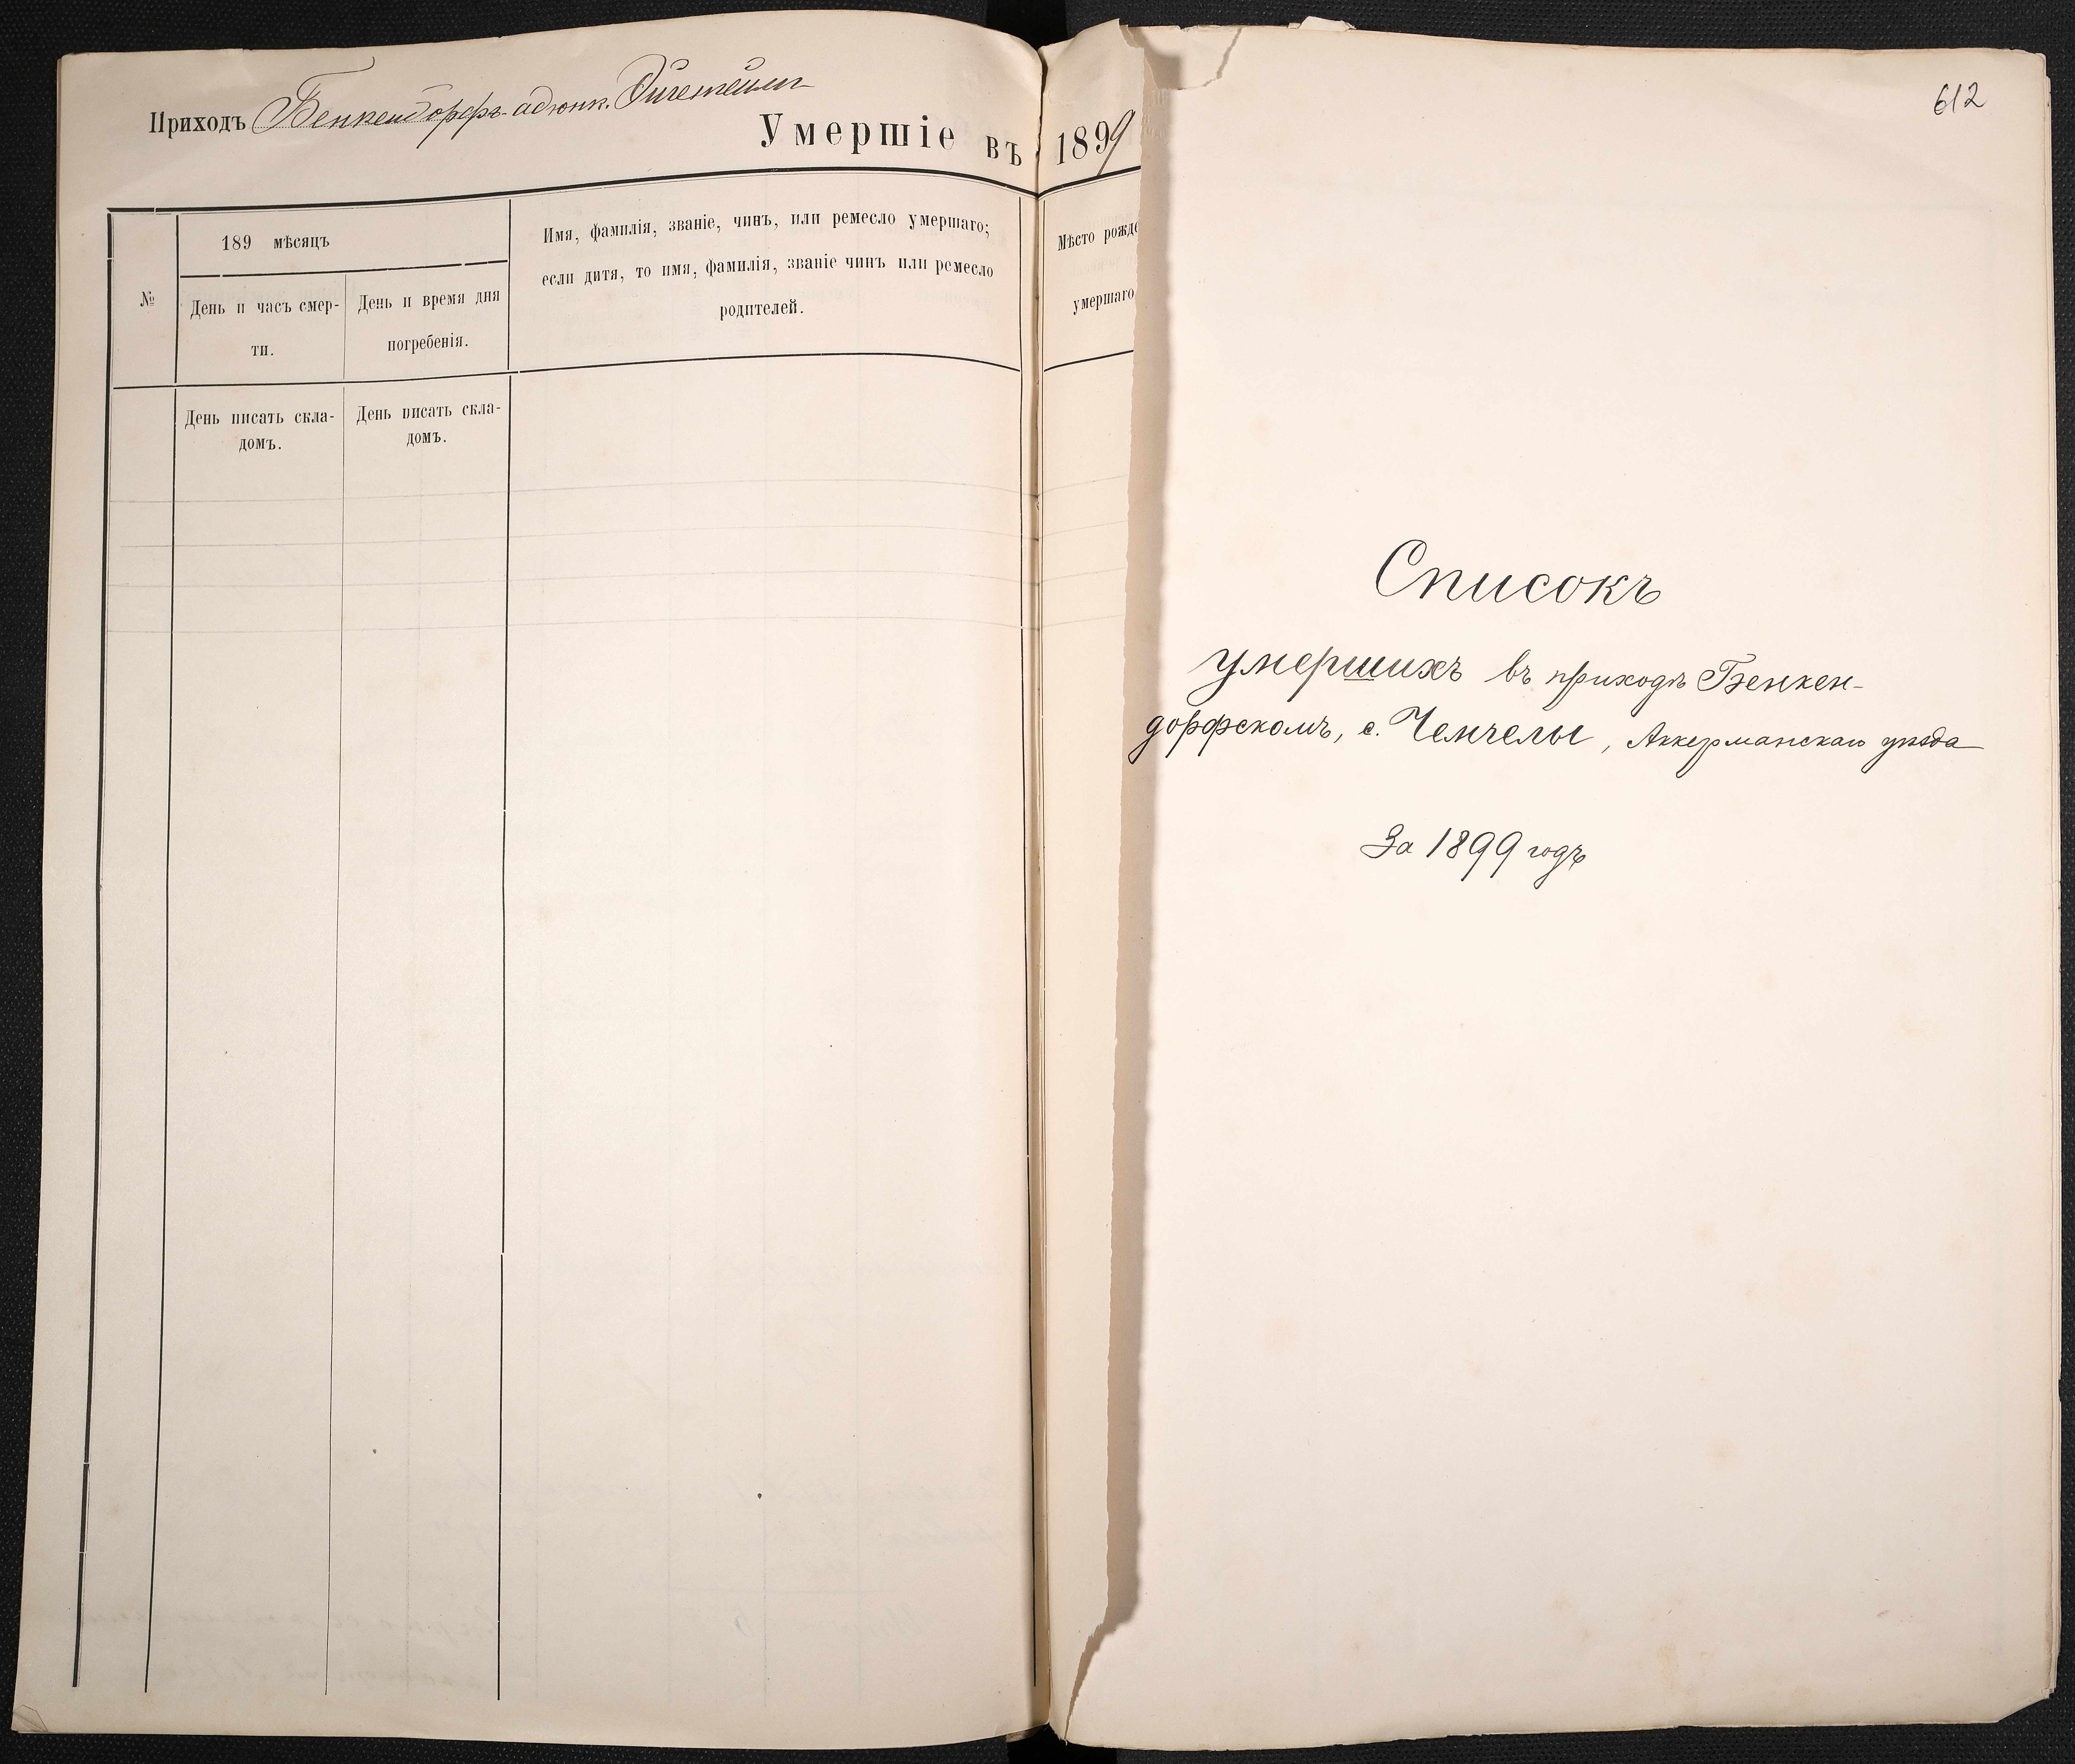 Приходъ Бенкендорфъ-адъюнк.
Умершіе въ 1899
№
189 мѣсяцъ
День и часъ смер-
ти.
День и время дня
погребенія.
Имя, фамилія, званіе, чинъ, или ремесло умершаго;
если дитя, то имя, фамилія, званіе чинъ или ремесло
родителей.
Мѣсто рожде
умершаго
День писать скла-
домъ.
День писать скла-
домъ.
612
Списокъ
умершихъ въ приходѣ Бенкен-
дорфскомъ, с. Чемчелы, Аккерманскаго уѣзда
За 1899 годъ